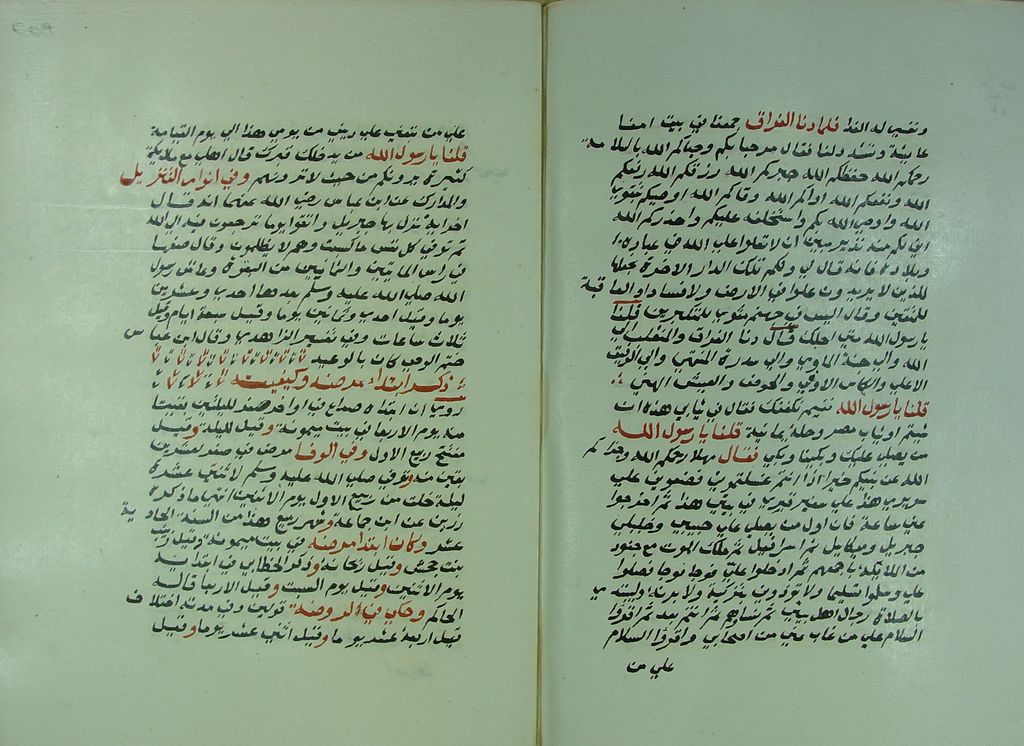 ونعى له الفدا فلما دنا الفراق جمعنا في بيت امنا
عايشة وتشدد لنا فقال مرحبا بكم وحياكم الله بالسلامة
رحمكم الله حفظكم الله جبركم الله رزقكم الله رفعكم
الله ونفعكم الله اواكم الله وقاكم الله اوصيكم بتقوى
الله واوصى الله بكم واستخلفه عليكم واحذركم الله
اني لكم منه نذير مبين ان لا تعلوا على الله في عباده
وبلاده فانه قال لي ولكم تلك الدار الاخرة نجعلها
للذين لا يريدون علوا في الارض ولا فسادا والعاقبة
للمتقين وقال اليس في جهنم مثوى للمتكبرين قلنا
يارسول الله متى اجلك قال دنا الفراق والمنقلب الى
الله والى جنة الماوى والى سدرة المنتهى والى الرفيق
الاعلى والكاس الاوفى والحوض والعيش الهني
قلنا يارسول الله فيم نكفنك فقال في ثيابي هذه ان
شيتم او ثياب مصر وحلة يمانية قلنا يارسول الله
من يصلي عليك وبكينا وبكى فقال مهلا رحمكم الله وجزاكم
الله عن نبيكم خيرا اذا انتم غسلتموني فضعوني على
سريري هذا على شفير قبري في بيتي هذا ثم اخرجوا
عني ساعة فان اول من يصلي علي حبيبي وخليلي
جبريل وميكايل ثم اسرافيل ثم ملك الموت مع جنود
من الملايكة باجمعهم ثم ادخلوا علي فوجا فوجا فصلوا
علي وسلموا تسليما ولا توذوني بتزكية ولا برنة وليبتدي
بالصلاة رجال اهل بيتي ثم نساوهم ثم انتم بعد ثم اقروا
السلام على من غاب عني من اصحابي واقروا السلام
على من
على من تبعني على ديني من يومي هذا الى يوم القيامة
قلنا يارسول الله من يدخلك قبرك قال اهلي مع ملايكة
كثيرة يرونكم من حيث لا ترونهم وفي انوار التنزيل
والمدارك عن ابن عباس رضي الله عنهما انه قال
اخر اية نزل بها جبريل واتقوا يوما ترجعون فيه الى الله
ثم توفى كل نفس ما كسبت وهم لا يظلمون وقال ضعها
في راس المايتين والثمانين من البقرة وعاش رسول
الله صلى الله عليه وسلم بعدها احدى وعشرين
يوما وقيل احدى وثمانين يوما وقيل سبعة ايام وقيل
ثلاث ساعات وفي تفسير الزاهدي وقال ابن عباس
ختم الوحي كان بالوعيد
ذكر ابتداء مرضه وكيفيته
روي ان ابتداه صداع في اواخر صفر لليلتين بقيتا
منه يوم الاربعا في بيت ميمونة وقيل لليلة وقيل
مفتتح ربيع الاول وفي الوفا مرض في صفر لعشر بقين
بقين منه وتوفي صلى الله عليه وسلم لاثنتي عشرة
ليلة خلت من ربيع الاول يوم الاثنين انتهى ما ذكره
رزين عن ابي حاتم وشهر ربيع هذا من السنة الحادية
عشر وكان ابتدا مرضه في بيت ميمونة وقيل زينب
بنت جحش وقيل ريحانة وذكر الخطابي ان ابتداه
يوم الاثنين وقيل يوم السبت وقيل الاربعا قاله
الحاكم وحكى في الروضة قولين وفي مدته اختلاف
قيل اربعة عشر يوما وقيل اثني عشر يوما وقيل